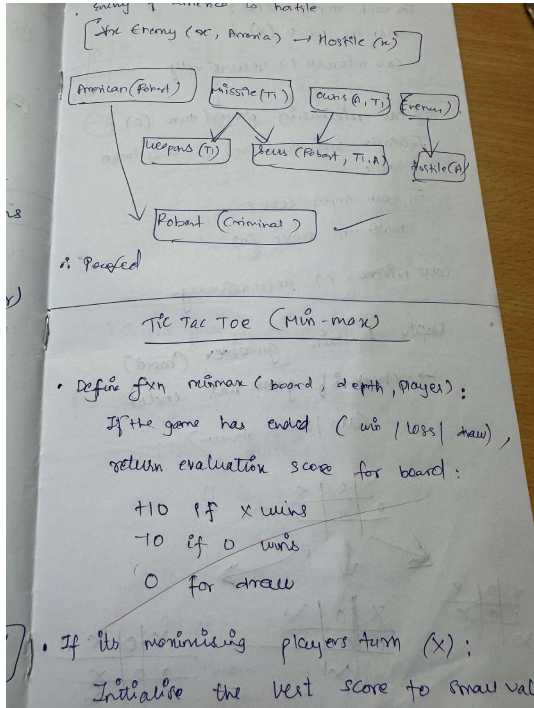 is hostile
[∀x Enemy (x, America) → Hostile (x)]
American (Robert)
Missile (T1)
Owns (A, T1)
Enemy
Weapons (T1)
Sells (Robert, T1, A)
Hostile (A)
Robert (Criminal)
∴ Proofed
Tic Tac Toe (Min-max)
• Define fxn minmax (board, depth, player):
If the game has ended (win / loss / draw),
return evaluation score for board:
+10 if x wins
-10 if 0 wins
0 for draw
• If its maximising players turn (X):
Initialise the best score to small val